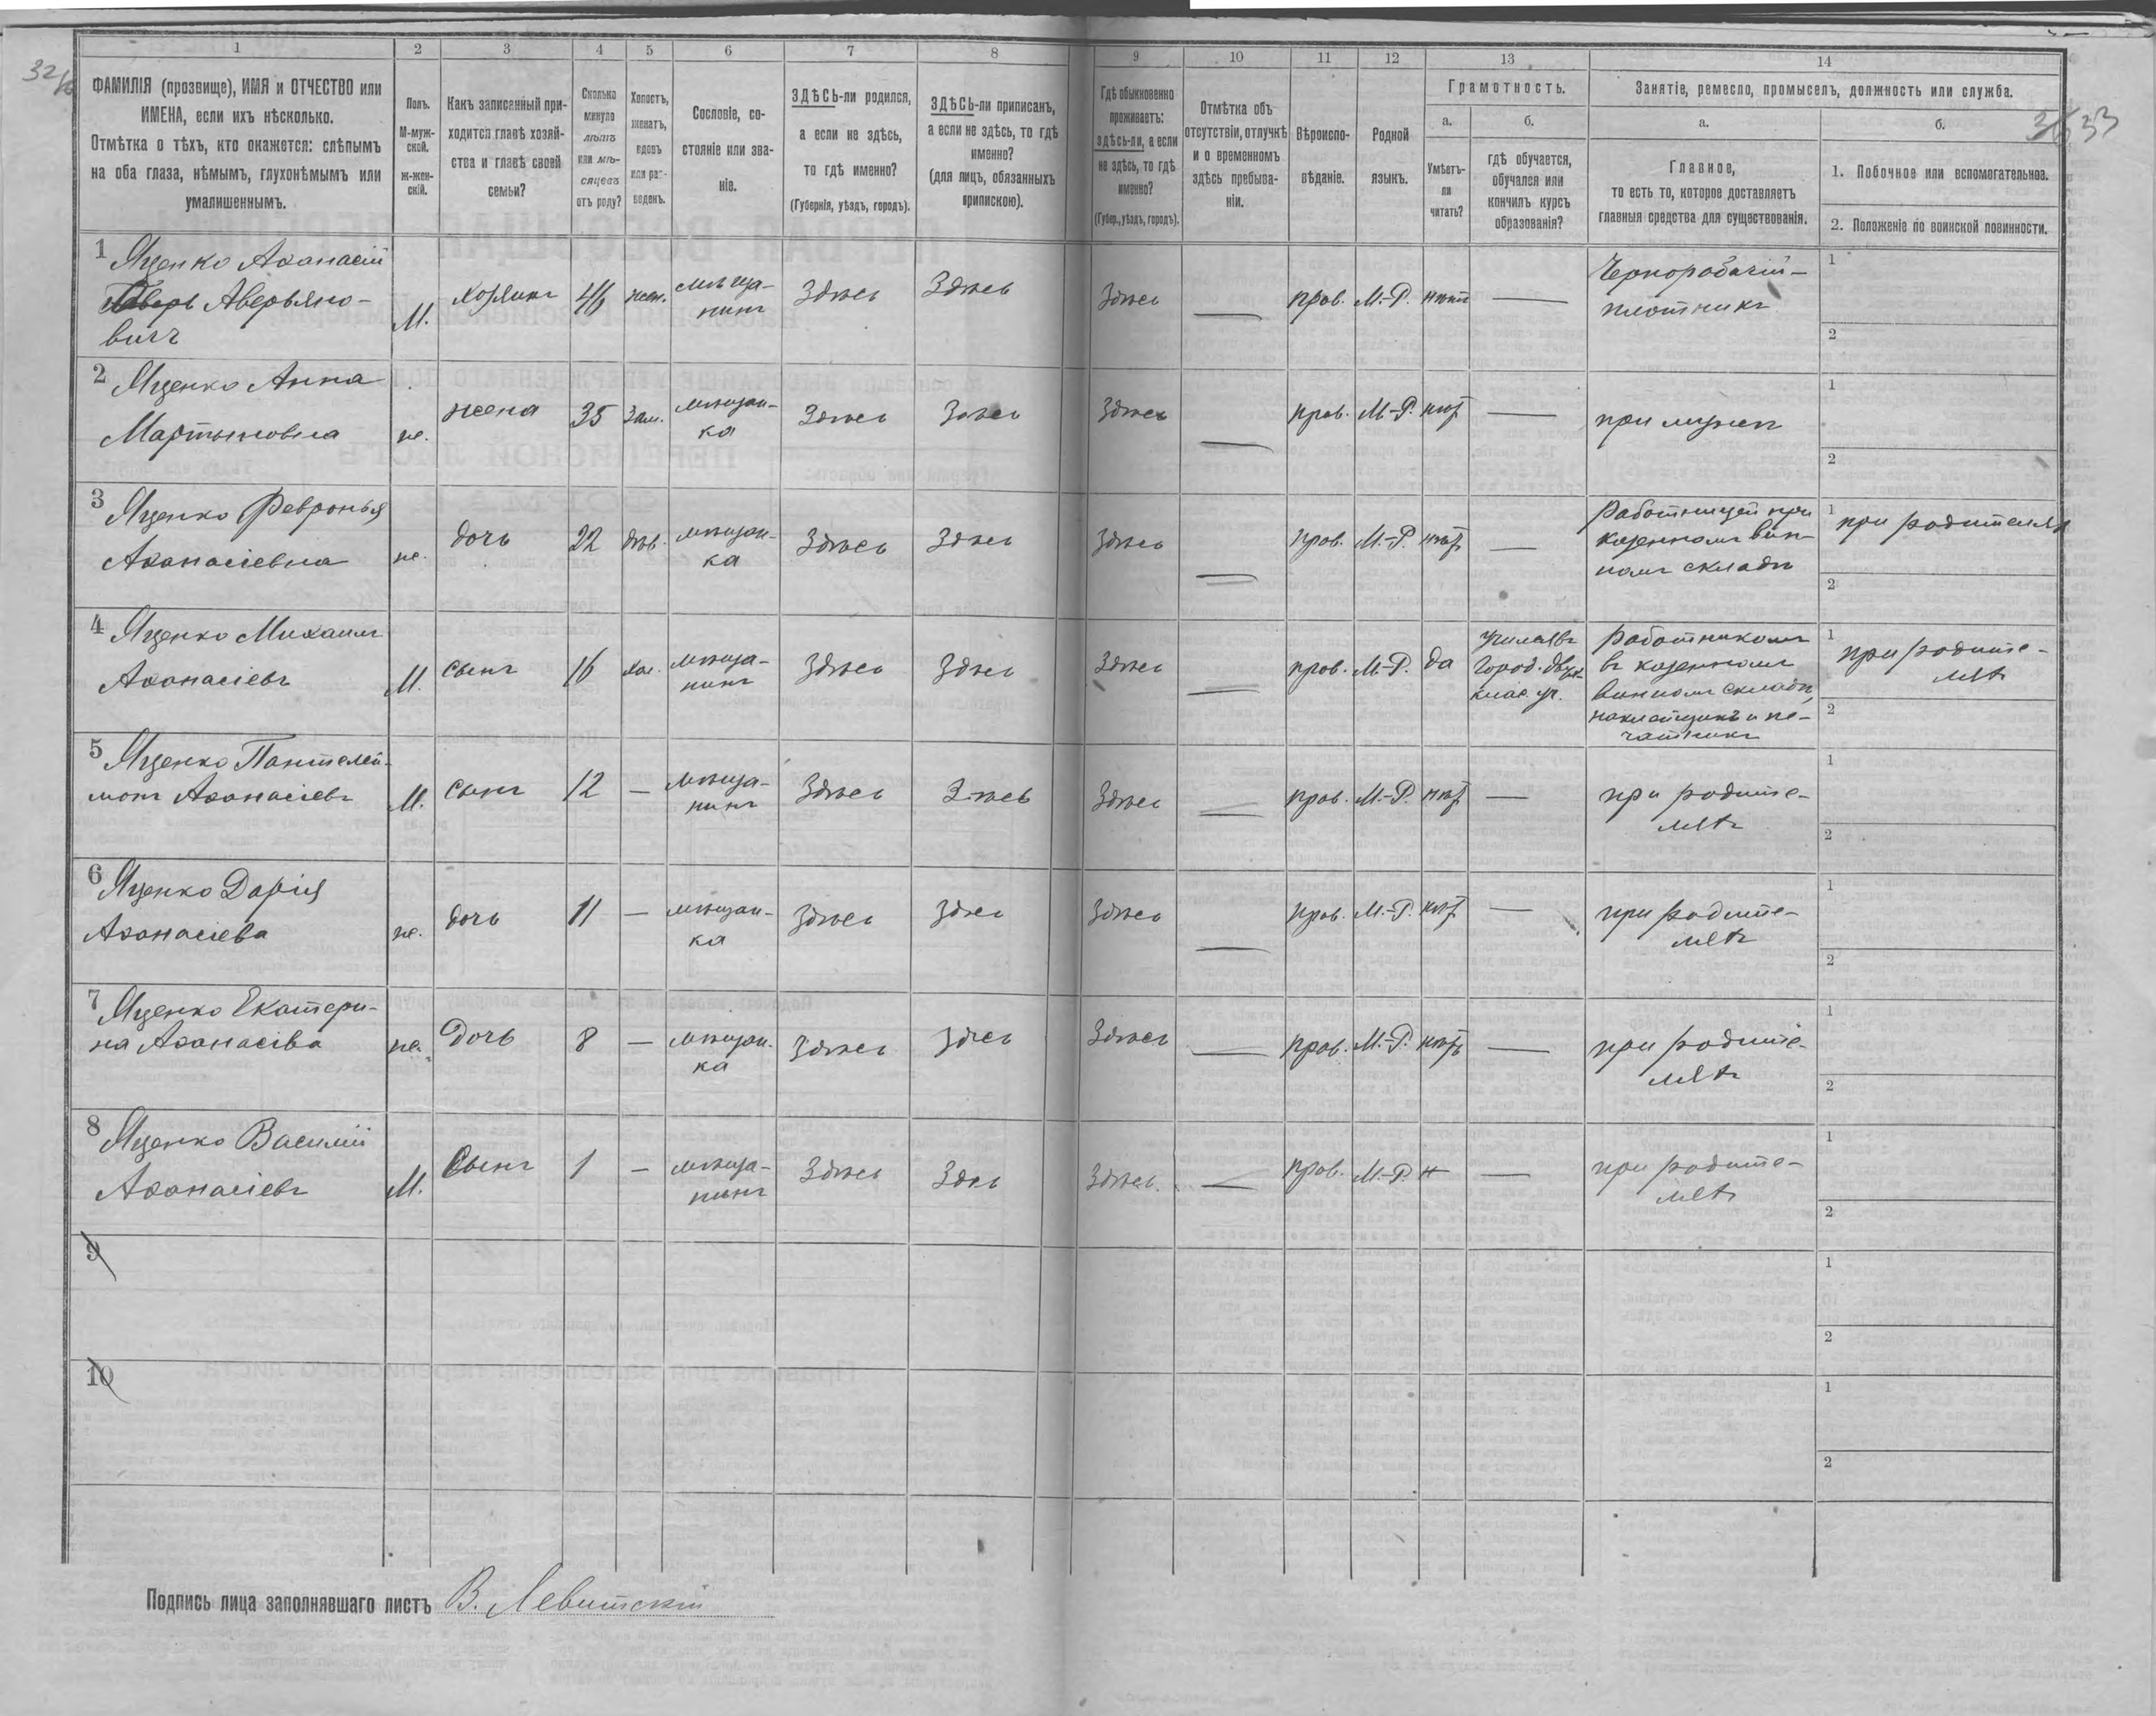 32
1 2 3 4 5 6 7 8 9 10 11 12 13 14
ФАМИЛІЯ (прозвище), ИМЯ и ОТЧЕСТВО или
ИМЕНА, если ихъ нѣсколько.
Отмѣтка о тѣхъ, кто окажется: слѣпымъ
на оба глаза, нѣмымъ, глухонѣмымъ или
умалишеннымъ.
Полъ.
М-муж-
ской.
Ж-жен-
скій.
Какъ записанный при-
ходится главѣ хозяй-
ства и главѣ своей
семьи?
Сколько
минуло
лѣтъ
или мѣ-
сяцевъ
отъ роду?
Холостъ,
женатъ,
вдовъ
или раз-
веденъ.
Сословіе, со-
стояніе или зва-
ніе.
ЗДѢСЬ-ли родился,
а если не здѣсь,
то гдѣ именно?
(Губернія, уѣздъ, городъ).
ЗДѢСЬ-ли приписанъ,
а если не здѣсь, то гдѣ
именно?
(для лицъ, обязанныхъ
припискою).
Гдѣ обыкновенно
проживаетъ:
здѣсь-ли, а если
не здѣсь, то гдѣ
именно?
(Губер., уѣздъ, городъ).
Отмѣтка объ
отсутствіи, отлучкѣ
и о временномъ
здѣсь пребыва-
ніи.
Вѣроиспо-
вѣданіе.
Родной
языкъ.
Грамотность.
а.
Умѣетъ-
ли
читать?
б.
гдѣ обучается,
обучался или
кончилъ курсъ
образованія?
Занятіе, ремесло, промыселъ, должность или служба.
33
а.
Главное,
то есть то, которое доставляетъ
главныя средства для существованія.
б.
1. Побочное или вспомогательное.
2. Положеніе по воинской повинности.
1 Яценко Афанасій
Аверьяно-
вичъ
М. хозяинъ 46 жен. мѣща-
нинъ
Здѣсь Здѣсь Здѣсь — прав. М.-Р. нѣтъ —
Чернорабочій-
плотникъ
1
2
2 Яценко Анна
Мартыновна
ж. жена 35 зам. мѣщан-
ка
Здѣсь Здѣсь Здѣсь — прав. М.-Р. нѣтъ —
при мужѣ
1
2
3 Яценко Февронья
Афанасіевна
ж. дочь 22 дѣв. мѣщан-
ка
Здѣсь Здѣсь Здѣсь — прав. М.-Р. нѣтъ —
Работницей при
казенномъ вин-
номъ складѣ
1 при родителяхъ
2
4 Яценко Михаилъ
Афанасіевъ
М. сынъ 16 хол. мѣща-
нинъ
Здѣсь Здѣсь Здѣсь — прав. М.-Р. да
Город. двух-
клас. уч.
Работникомъ
въ казенномъ
винномъ складѣ,
наклейщикъ и пе-
чатникъ
1 при родите-
ляхъ
2
5 Яценко Пантелей-
монъ Афанасіевъ
М. сынъ 12 — мѣща-
нинъ
Здѣсь Здѣсь Здѣсь — прав. М.-Р. нѣтъ —
при родите-
ляхъ
1
2
6 Яценко Дарія
Афанасіева
ж. дочь 11 — мѣщан-
ка
Здѣсь Здѣсь Здѣсь — прав. М.-Р. нѣтъ —
при родите-
ляхъ
1
2
7 Яценко Екатери-
на Афанасіва
ж. дочь 8 — мѣщан-
ка
Здѣсь Здѣсь Здѣсь — прав. М.-Р. нѣтъ —
при родите-
ляхъ
1
2
8 Яценко Василій
Афанасіевъ
М. сынъ 1 — мѣща-
нинъ
Здѣсь Здѣсь Здѣсь — прав. М.-Р. н —
при родите-
ляхъ
1
2
9
1
2
10
1
2
Подпись лица заполнявшаго листъ В. Левитскій